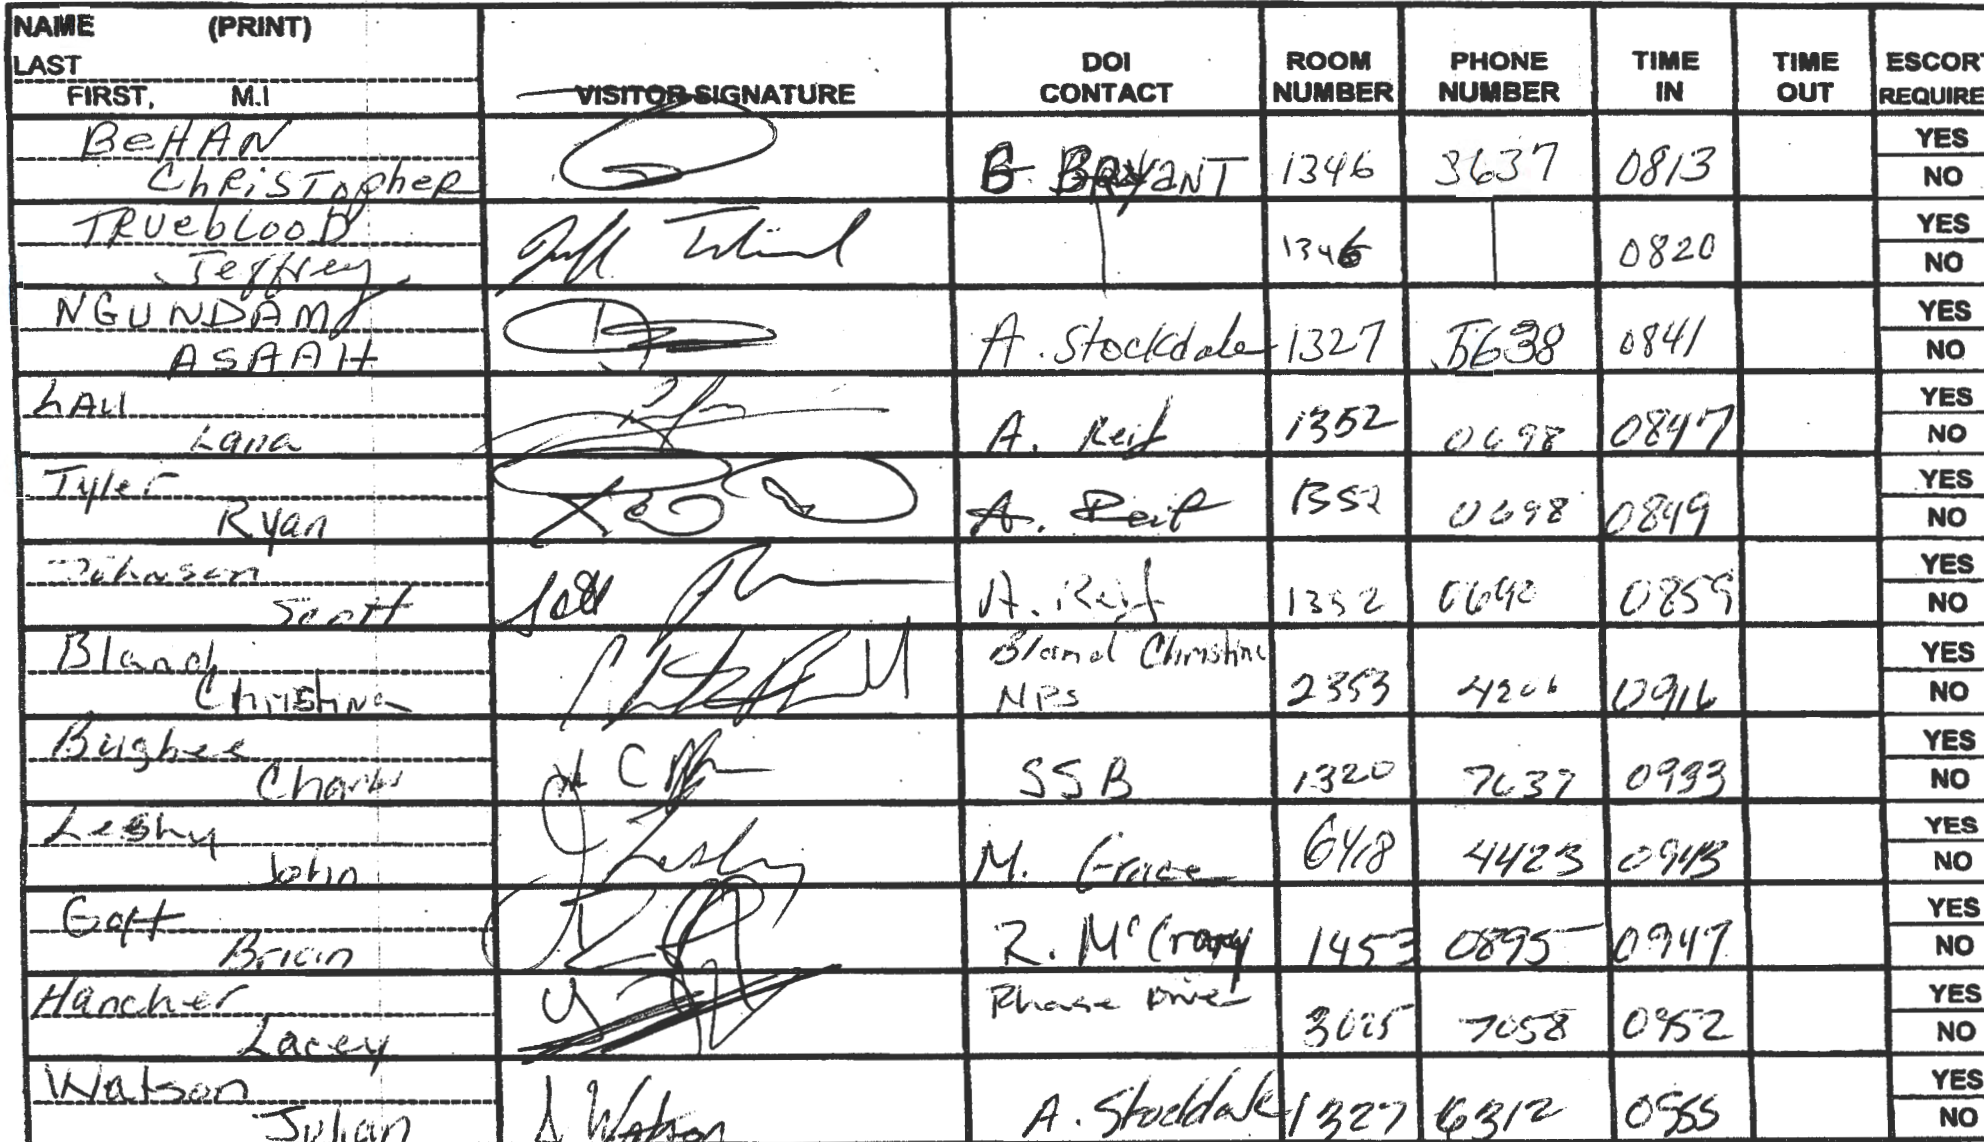 NAME (PRINT)
LAST
FIRST, M.I
VISITOR SIGNATURE
DOI CONTACT
ROOM NUMBER
PHONE NUMBER
TIME IN
TIME OUT
ESCORT REQUIRE
BeHAN
ChRiSTopheR
B. BRYANT 1346 3637 0813 YES NO
TRUebLooD
Jeffrey
1346 0820 YES NO
NGUNDAM
ASAAH
A. Stockdale 1327 5638 0841 YES NO
LAU
Lana
A. Reif 1352 0698 0847 YES NO
Tyler
Ryan
A. Reif 1352 0698 0849 YES NO
Johnson
Scott
A. Reif 1352 0859 YES NO
Bland
Christina
Bland Christina
NPS 2353 4206 0916 YES NO
Bugbee
Charles
SSB 1320 7637 0933 YES NO
Leshy
John
J Leshy
M. Grace 6418 4423 0943 YES NO
Goft
Brian
R. McCrary 1453 0895 0947 YES NO
Hancher
Lacey
Phase Drive
7058 0952 YES NO
Watson
Julian
J Watson
A. Stockdale 1327 6312 0955 YES NO